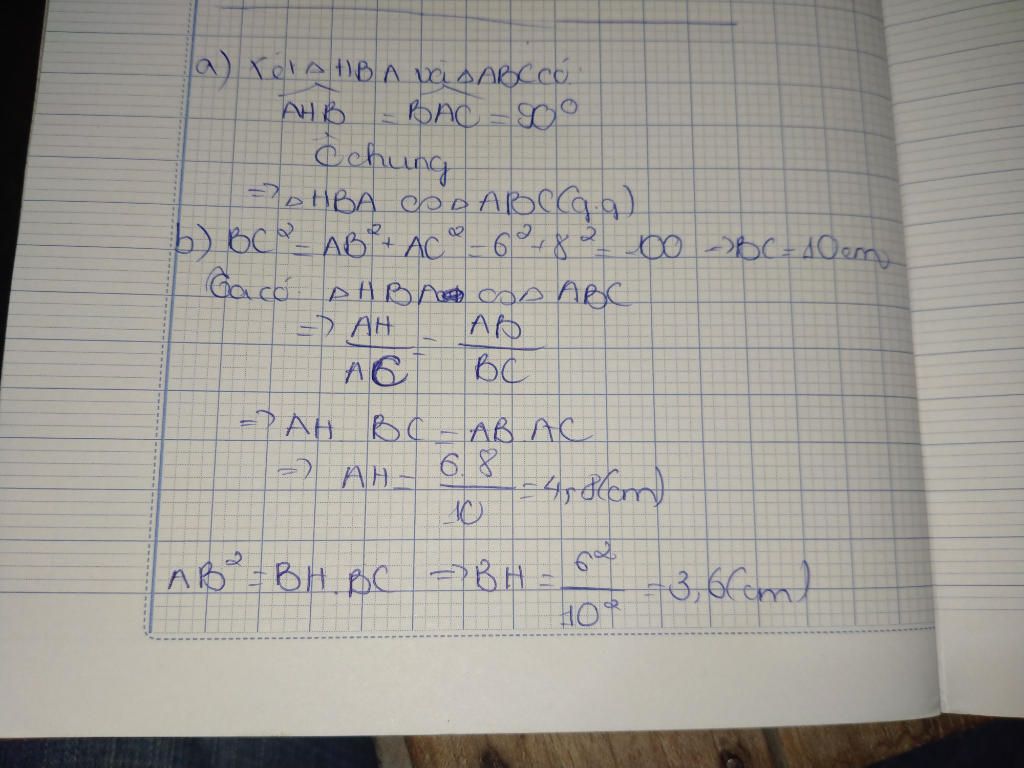 a) Xét △HBA và △ABC có
AHB = BAC = 90°
C chung
=> △HBA ∽ △ABC (g.g)
b) BC² = AB² + AC² = 6² + 8² = 100 → BC = 10 cm
Ta có △HBA ∽ △ABC
=> AH/AC = AB/BC
=> AH BC = AB AC
=> AH = 6.8/10 = 4,8(cm)
AB² = BH.BC => BH = 6²/10² = 3,6(cm)